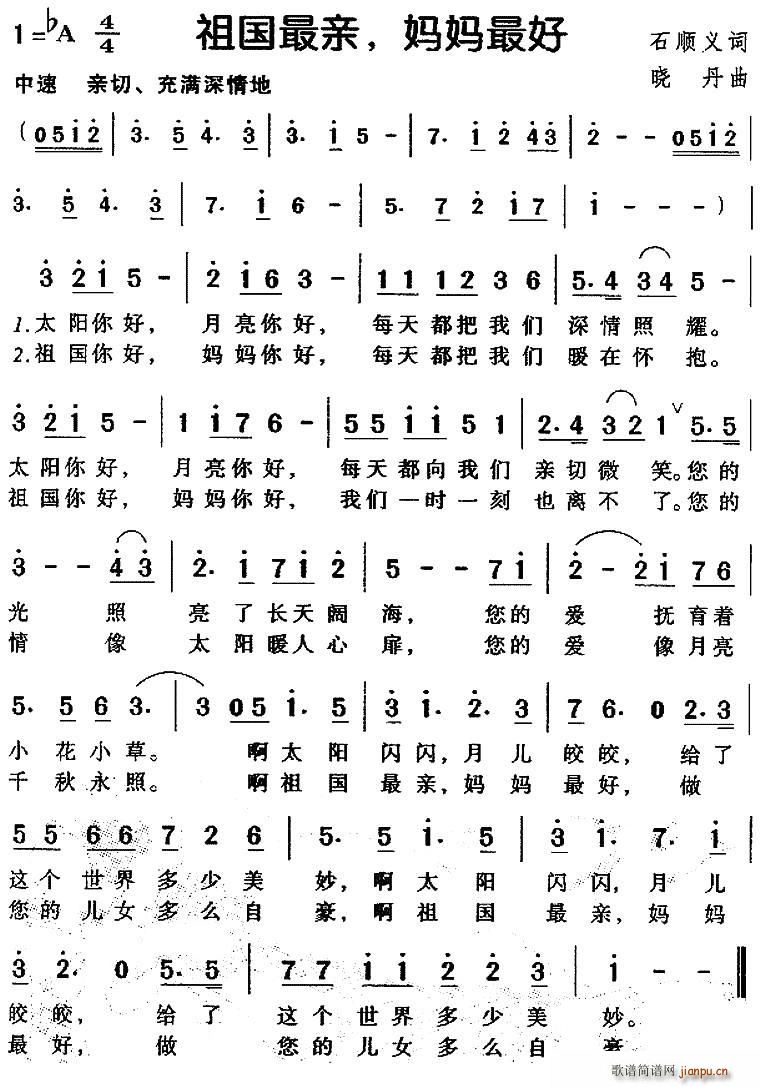 1=♭A 4/4 祖国最亲，妈妈最好 石顺义词
中速 亲切、充满深情地 晓 丹曲
(0512 | 3. 5 4. 3 | 3. 1 5 - | 7. 1 2 43 | 2 - - 0512 |
3. 5 4. 3 | 7. 1 6 - | 5. 7 2 17 | 1 - - -) |
3 21 5 - | 2 16 3 - | 11 12 3 6 | 5. 4 34 5 - |
1.太阳你好，月亮你好，每天都把我们深情照耀。
2.祖国你好，妈妈你好，每天都把我们暖在怀抱。
3 21 5 - | 1 17 6 - | 55 11 5 1 | 2. 4 32 1 ∨ 5. 5 |
太阳你好，月亮你好，每天都向我们亲切微笑。您的
祖国你好，妈妈你好，我们一时一刻也离不了。您的
3 - - 43 | 2. 1 71 2 | 5 - - 71 | 2 - 21 76 |
光照亮了长天阔海，您的爱抚育着
情像太阳暖人心扉，您的爱像月亮
5. 5 6 3. | 3 05 1. 5 | 3 1. 2. 3 | 7 6. 0 2. 3 |
小花小草。啊太阳闪闪，月儿皎皎，给了
千秋永照。啊祖国最亲，妈妈最好，做
55 66 7 2 6 | 5. 5 1. 5 | 3 1. 7. 1 |
这个世界多少美妙，啊太阳闪闪，月儿
您的儿女多么自豪，啊祖国最亲，妈妈
3 2. 0 5. 5 | 77 11 2 2 3 | 1 - - ‖
皎皎，给了这个世界多少美妙。
最好，做您的儿女多么自
歌谱简谱网
jianpu.cn